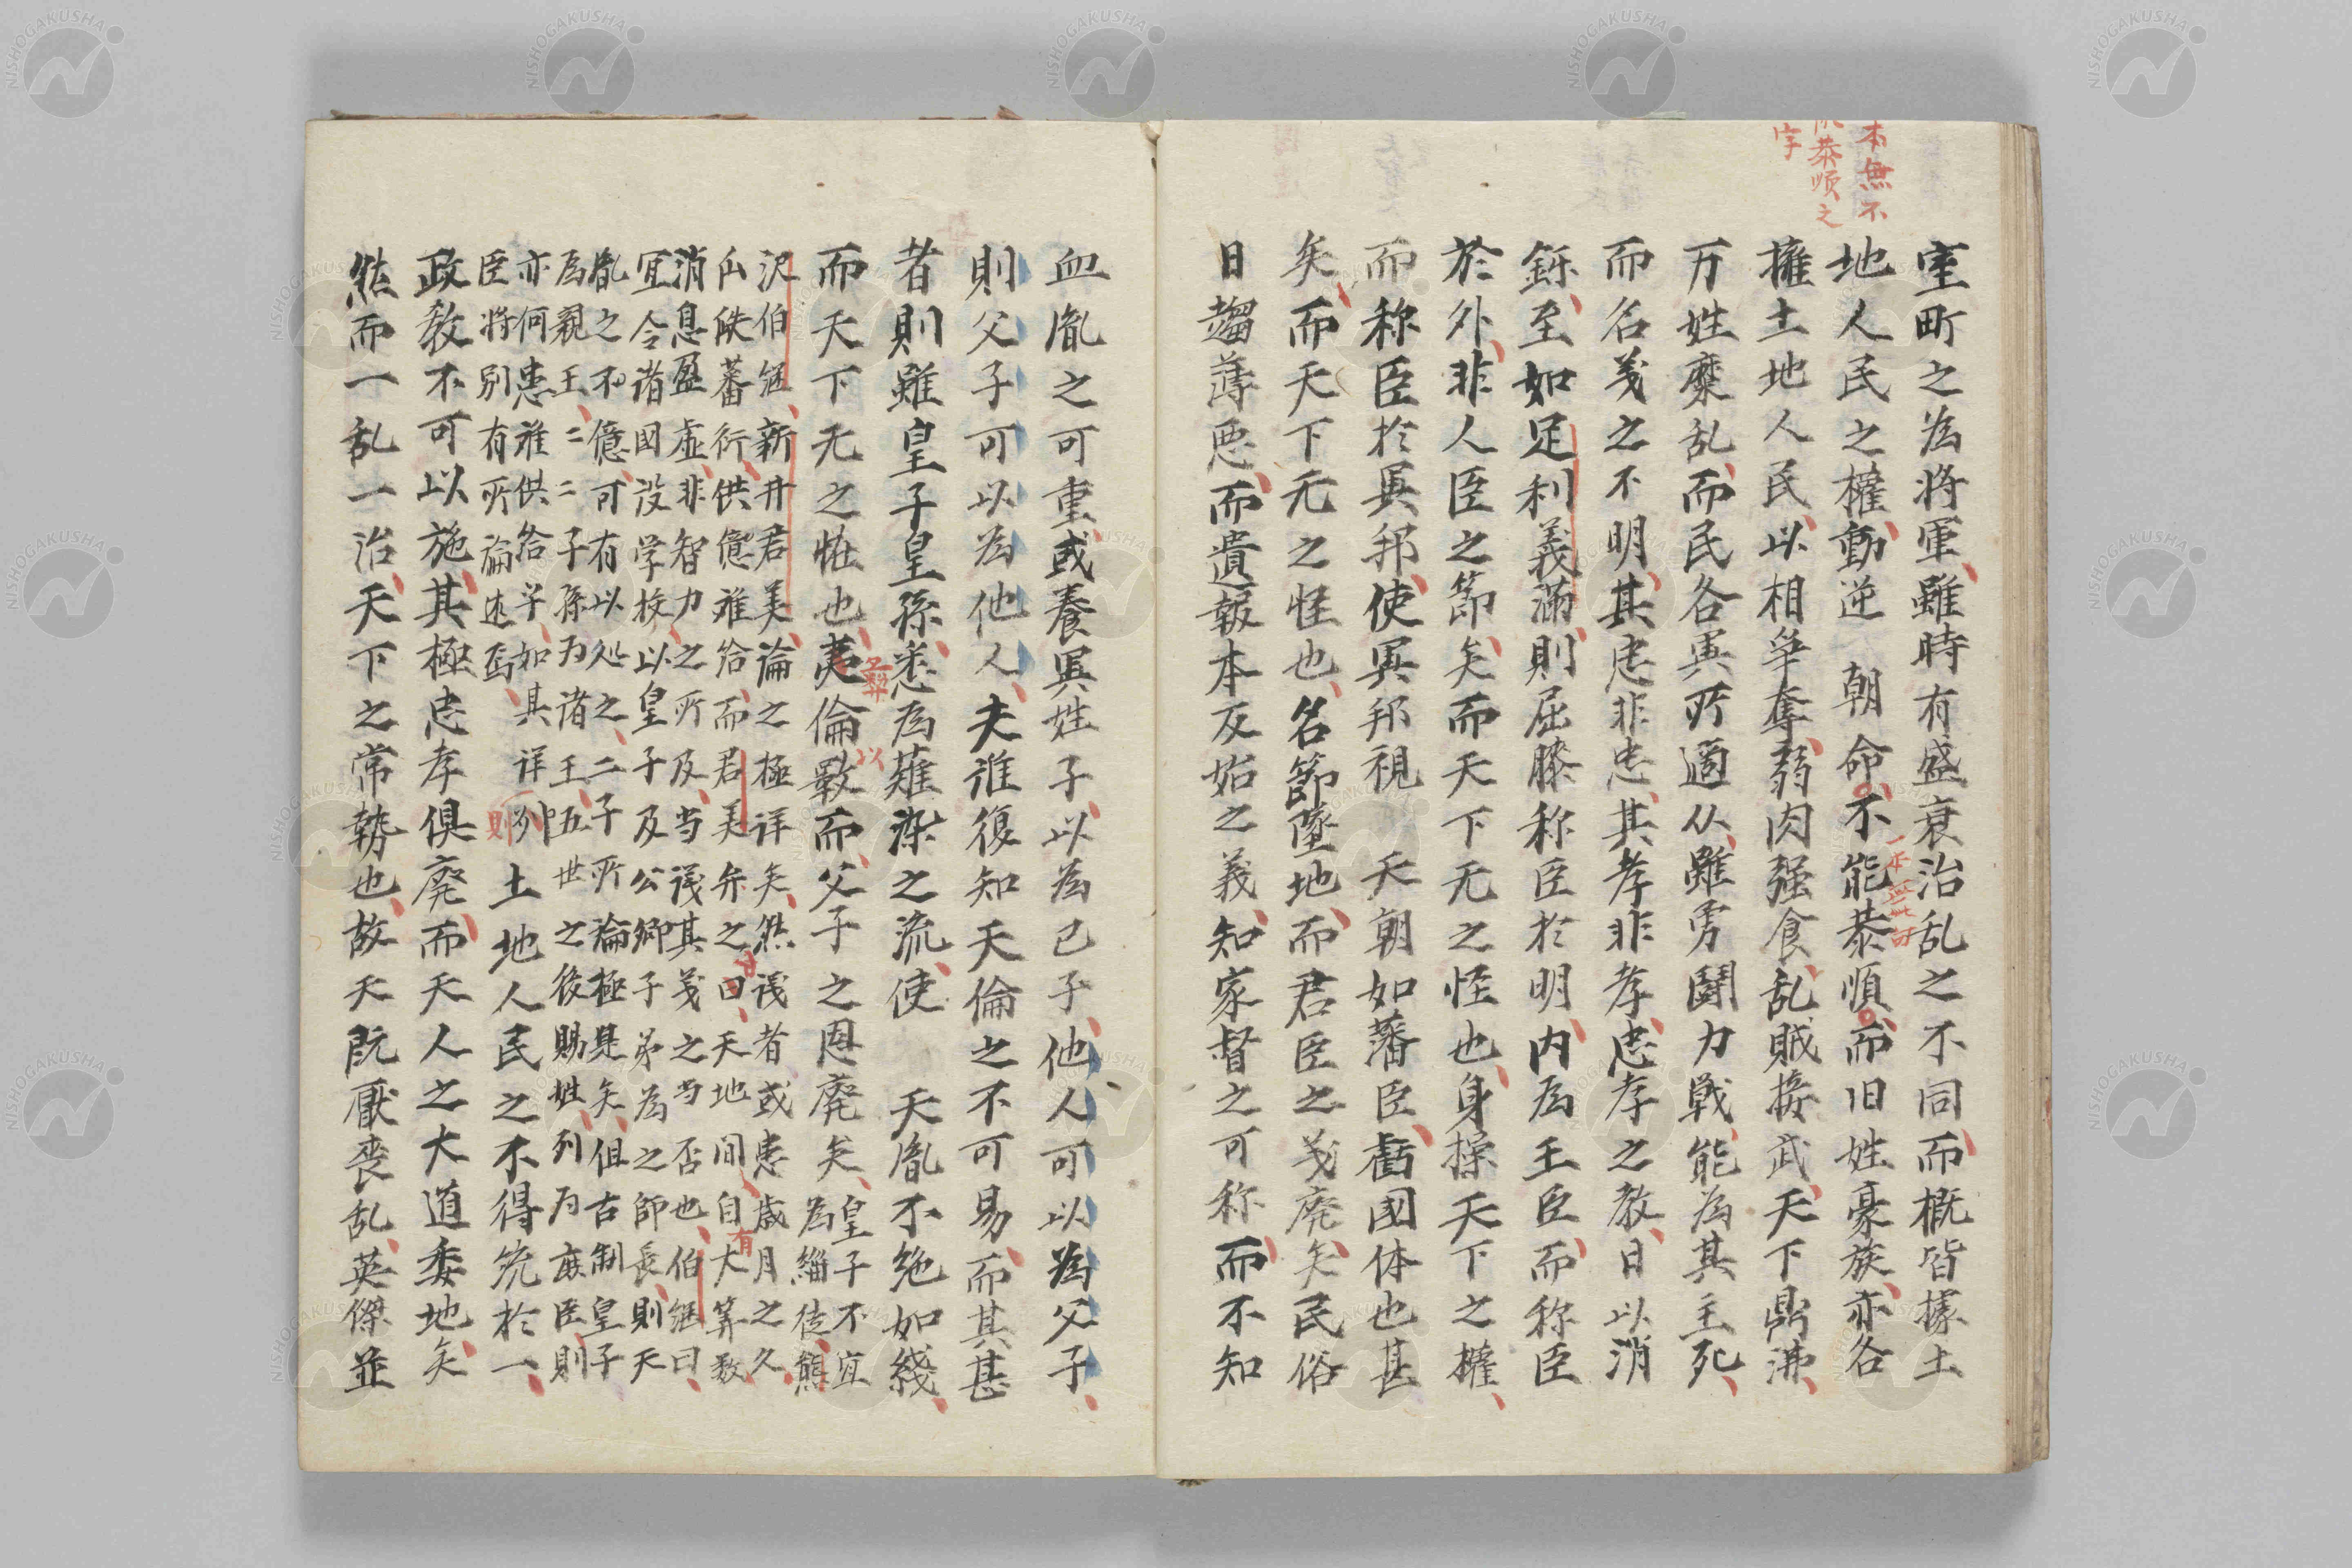 本無不
恭順之
字
室町之為将軍雖時有盛衰治乱之不同而概皆據土
地人民之權動逆 朝命不能恭順而旧姓豪族亦各
一本無此句
擁土地人民以相争奪弱肉强食乱賊接武天下鼎沸
万姓糜乱而民各異所適从雖勇鬪力戦能為其主死
而名義之不明其忠非忠其孝非孝忠孝之教日以消
鑠至如足利義満則屈膝称臣於明内為王臣而称臣
於外非人臣之節矣而天下无之怪也身操天下之權
而称臣於異邦使異邦視 天朝如藩臣虧國体也甚
矣而天下无之怪也名節墜地而君臣之義廃矣民俗
日趨薄悪而遺報本反始之義知家督之可称而不知
血胤之可重或養異姓子以為己子他人可以為父子
則父子可以為他人夫誰復知天倫之不可易而其甚
者則雖皇子皇孫悉為薙染之流使 天胤不絶如綫
而天下无之怪也夷倫斁而父子之恩廃矣
以
皇子不宜
為緇徒熊
沢伯継新井君美論之極詳矣然議者或患歳月之久
仙帙蕃衍供億難給而君美弁之曰天地間自大算数
有
消息盈虚非智力之所及当議其義之当否也伯継曰
宜令諸國設学校以皇子及公卿子弟為之師長則天
胤之不億可有以処之二子所論極是矣但古制皇子
為親王二二子孫为諸王五世之後賜姓列为庶臣則
亦何患難供給乎如其詳
臣将別有所論述焉
則 土地人民之不得統於一
政教不可以施其極忠孝倶廃而天人之大道委地矣
然而一乱一治天下之常勢也故天既厭喪乱英傑並